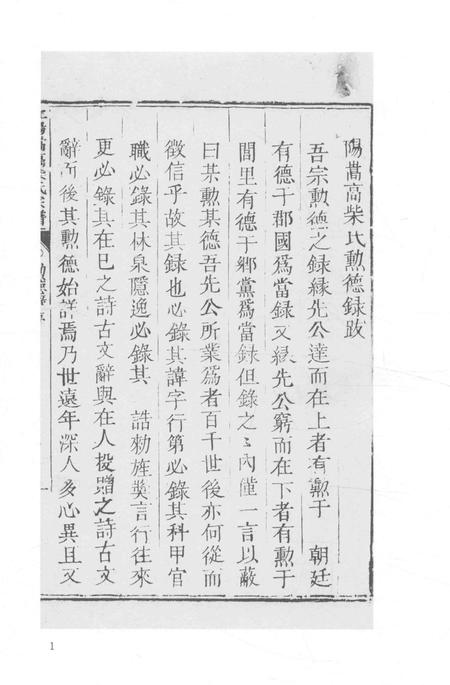 陽嵩高柴氏勲德録跋
吾宗勲德之録縁先公達而在上者有勲于　朝廷
有德于郡國爲當録又縁先公窮而在下者有勲于
閭里有德于鄉黨爲當録但錄之〻内僅一言以蔽
曰某勲某德吾先公所業爲者百千世後亦何從而
徵信乎故其録也必錄其諱字行第必錄其科甲官
職必錄其林泉隱逸必錄其　誥勅旌奨言行往來
更必錄其在已之詩古文辭與在人投贈之詩古文
辭而後其勲德始詳焉乃世遠年深人多心異且又
嵩高柴氏宗譜
勲德録
1